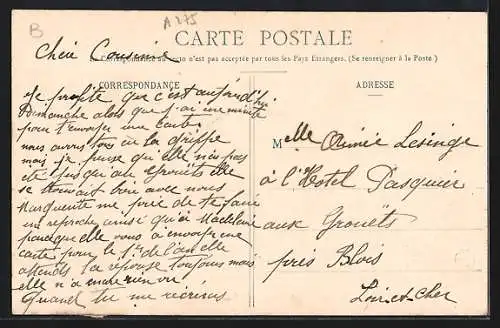 B
A 275
CARTE POSTALE
La Correspondance au recto n'est pas acceptée par tous les Pays Etrangers. (Se renseigner à la Poste)
Chère Cousine
CORRESPONDANCE
Je profite que c'est aujourd'hui
Dimanche alors que j'ai une minute
pour t'envoyer une carte
nous avons tous eu la grippe
mais je pense qu'elle n'a pas
été jusqu'au
se trouvait bien avec nous
Marguerite me prie de te faire
un reproche ainsi qu'à Madeleine
parce qu'elle vous a envoyer une
carte pour le 1er de l'an elle
attends la réponse toujours mais
elle n'a encore rien vu
Quand tu me récriras
ADRESSE
Melle Aimée Lesinge
à l'Hotel Pasquier
aux Grouëts
près Blois
Loir et Cher